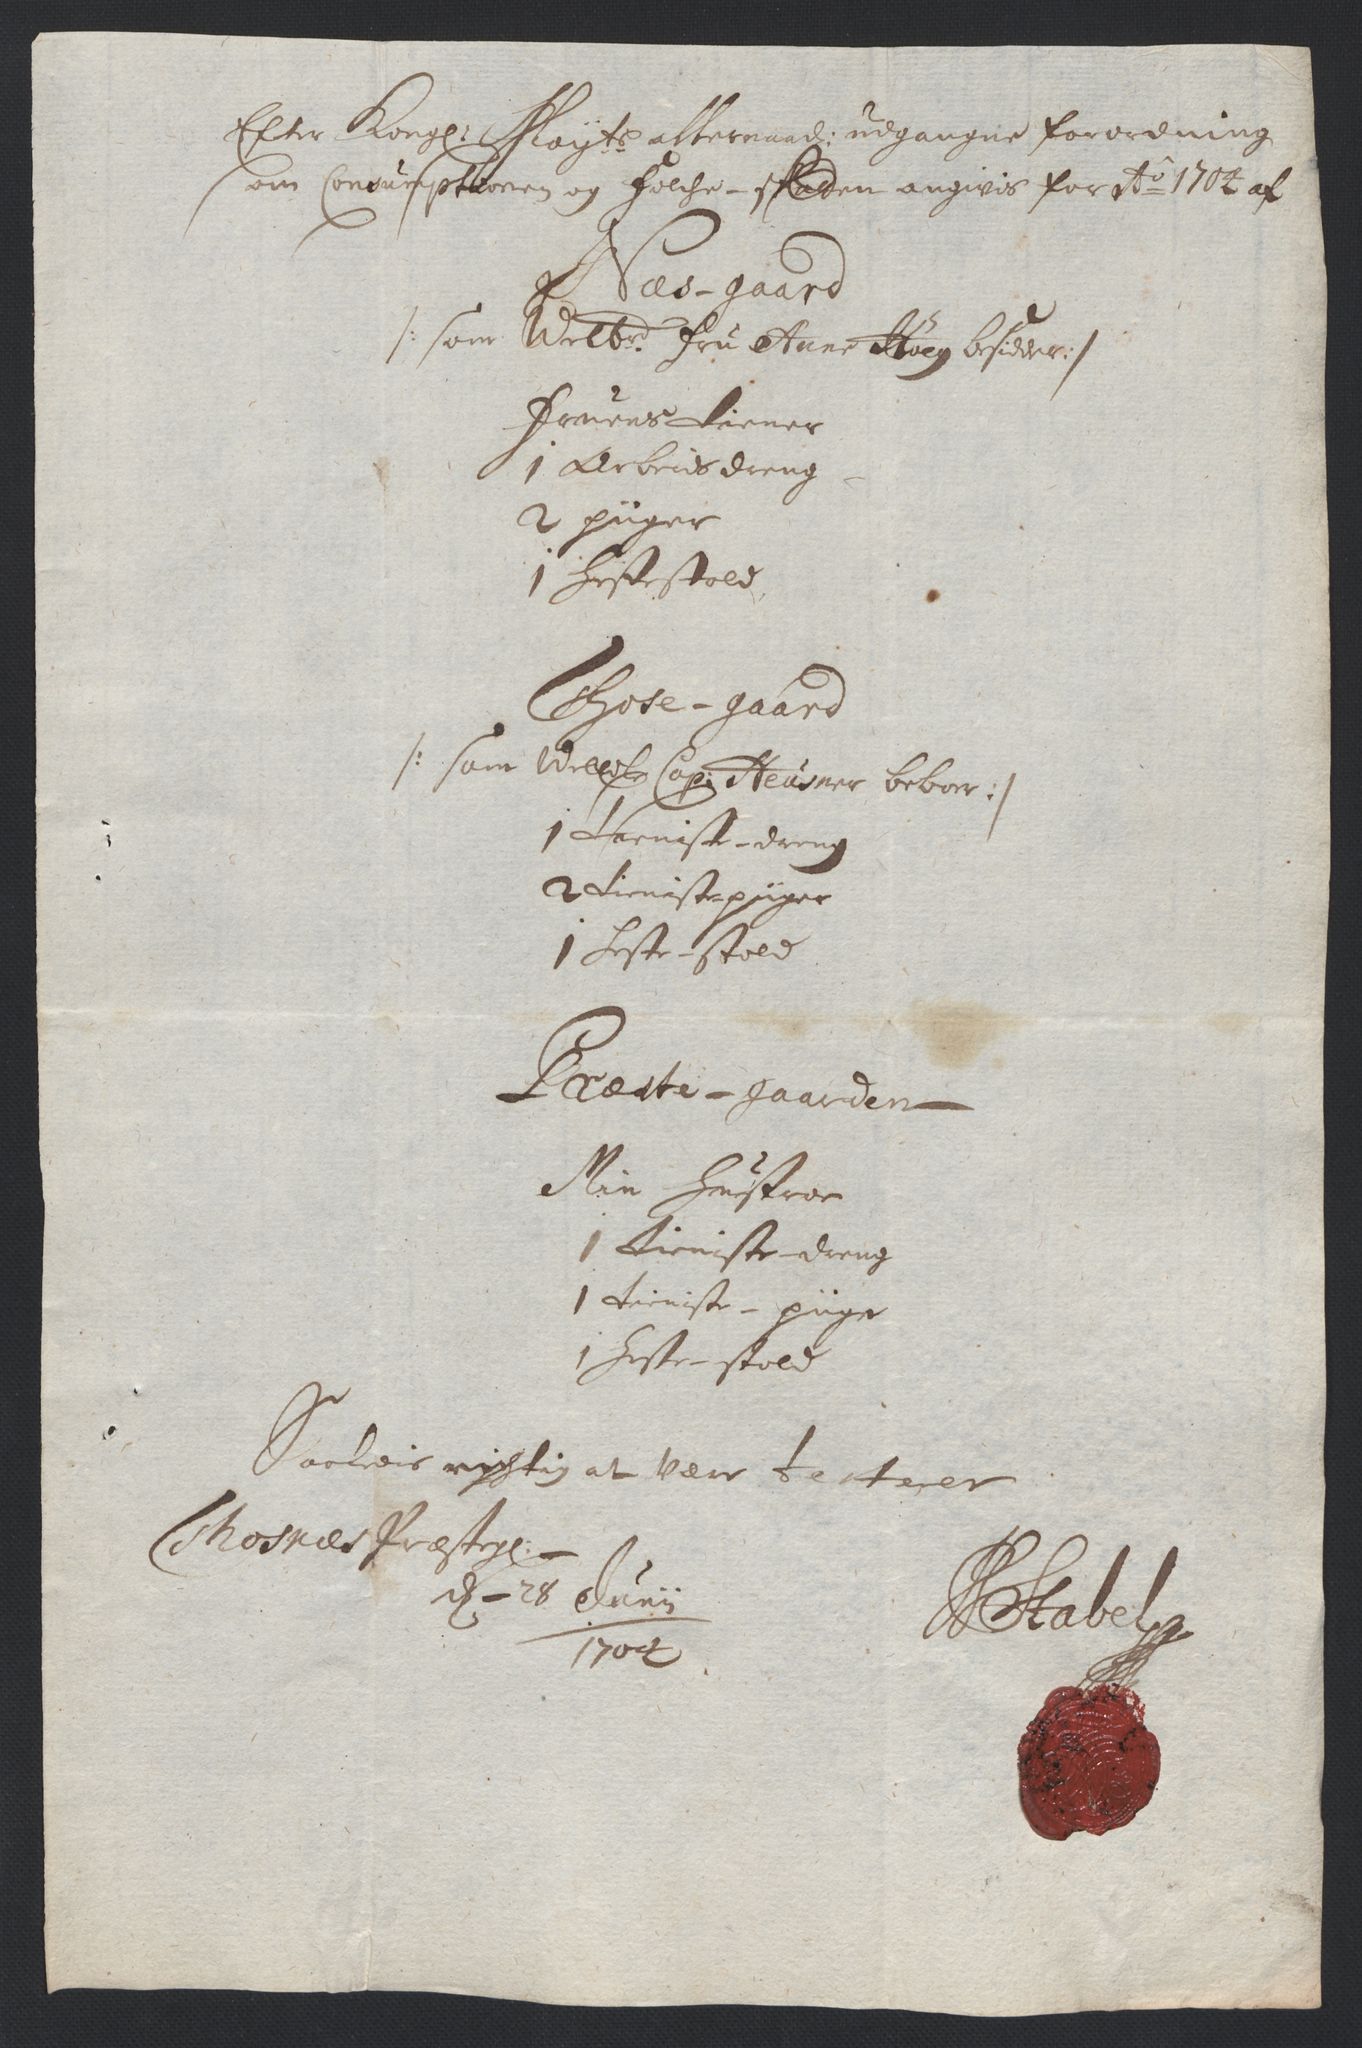 Efter Kongl: Mayts allernaad: udgangne forordning
om Consumptionen og Folche-skatten angivis for Ao 1704 af
Næs-gaard
/: som Welbr. Fru Anne Høeg besidder:/
Fruens tiener
1 Arbeids dreng
2 piiger
1 hestestold
Those-gaard
/: som Cap: Heusner beboer:/
1 tieniste-dreng
2 tieniste-piiger
1 heste-stold
Præste-gaarden
Min Hustroe
1 tieniste-dreng
1 tieniste-piige
1 heste-stold
Saaleeis rigtig at være testerer
Præstegl:
d. 28 Junii
1704
Stabel